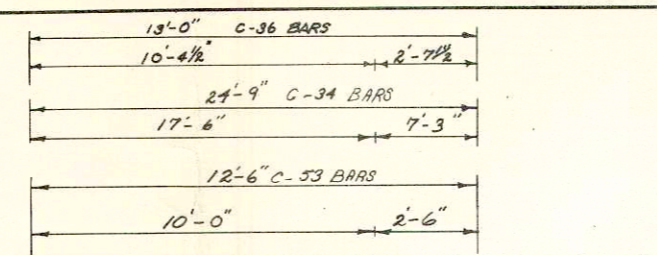 13'-0" C-36 BARS
10'-4½" 2'-7½"
24'-9" C-34 BARS
17'-6" 7'-3"
12'-6" C-53 BARS
10'-0" 2'-6"